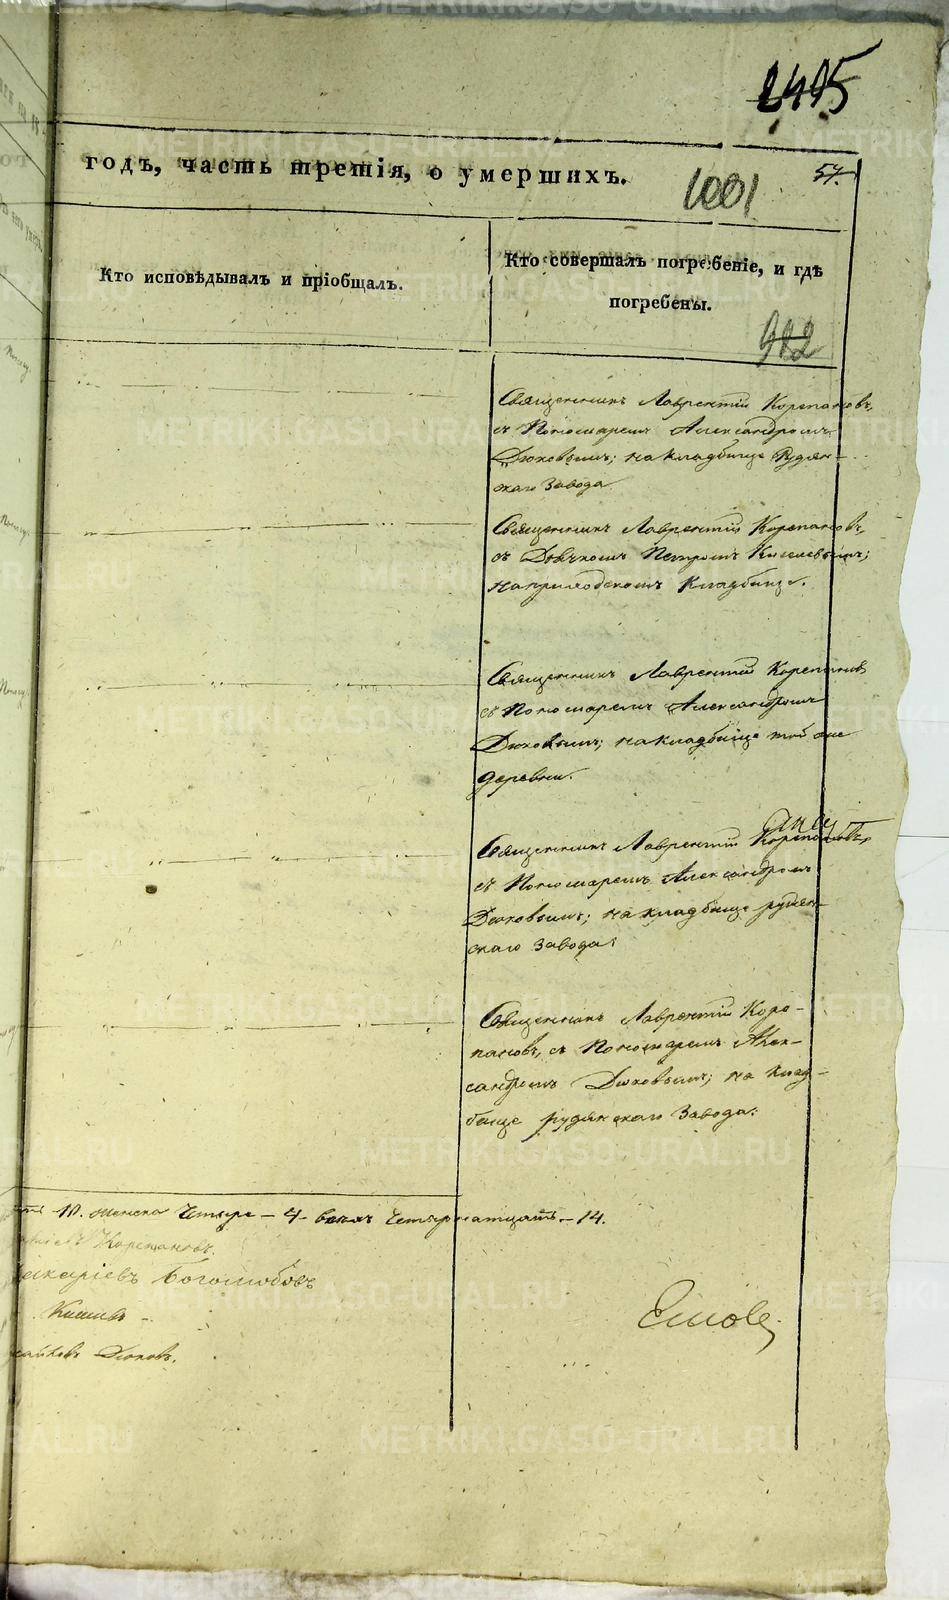 2495
годъ, часть третія, о умершихъ.
57.
1001
Кто исповѣдывалъ и пріобщалъ.
Кто совершалъ погребеніе, и гдѣ
погребены.
982
Священникъ Лаврентій Корепановъ,
съ Пономаремъ Александромъ
Дюковымъ; на кладбище Рудян-
скаго Завода
Священникъ Лаврентій Корепановъ,
съ Дьячкомъ Петромъ
на приходскомъ Кладбище.
Священникъ Лаврентій Корепановъ
съ Пономаремъ Александромъ
Дюковымъ; на кладбище той же
деревни.
Священникъ Лаврентій Корепановъ,
съ Пономаремъ Александромъ
Дюковымъ; на кладбище рудян-
скаго Завода;
Священникъ Лаврентій Коре-
пановъ, съ Пономаремъ Алек-
сандромъ Дюковымъ; на клад-
бище рудянскаго Завода:
10. женска Четыре - 4 - всехъ Четырнатцать - 14.
Корепановъ.
Боголюбовъ
Дюковъ.
METRIKI.GASO-URAL.RU